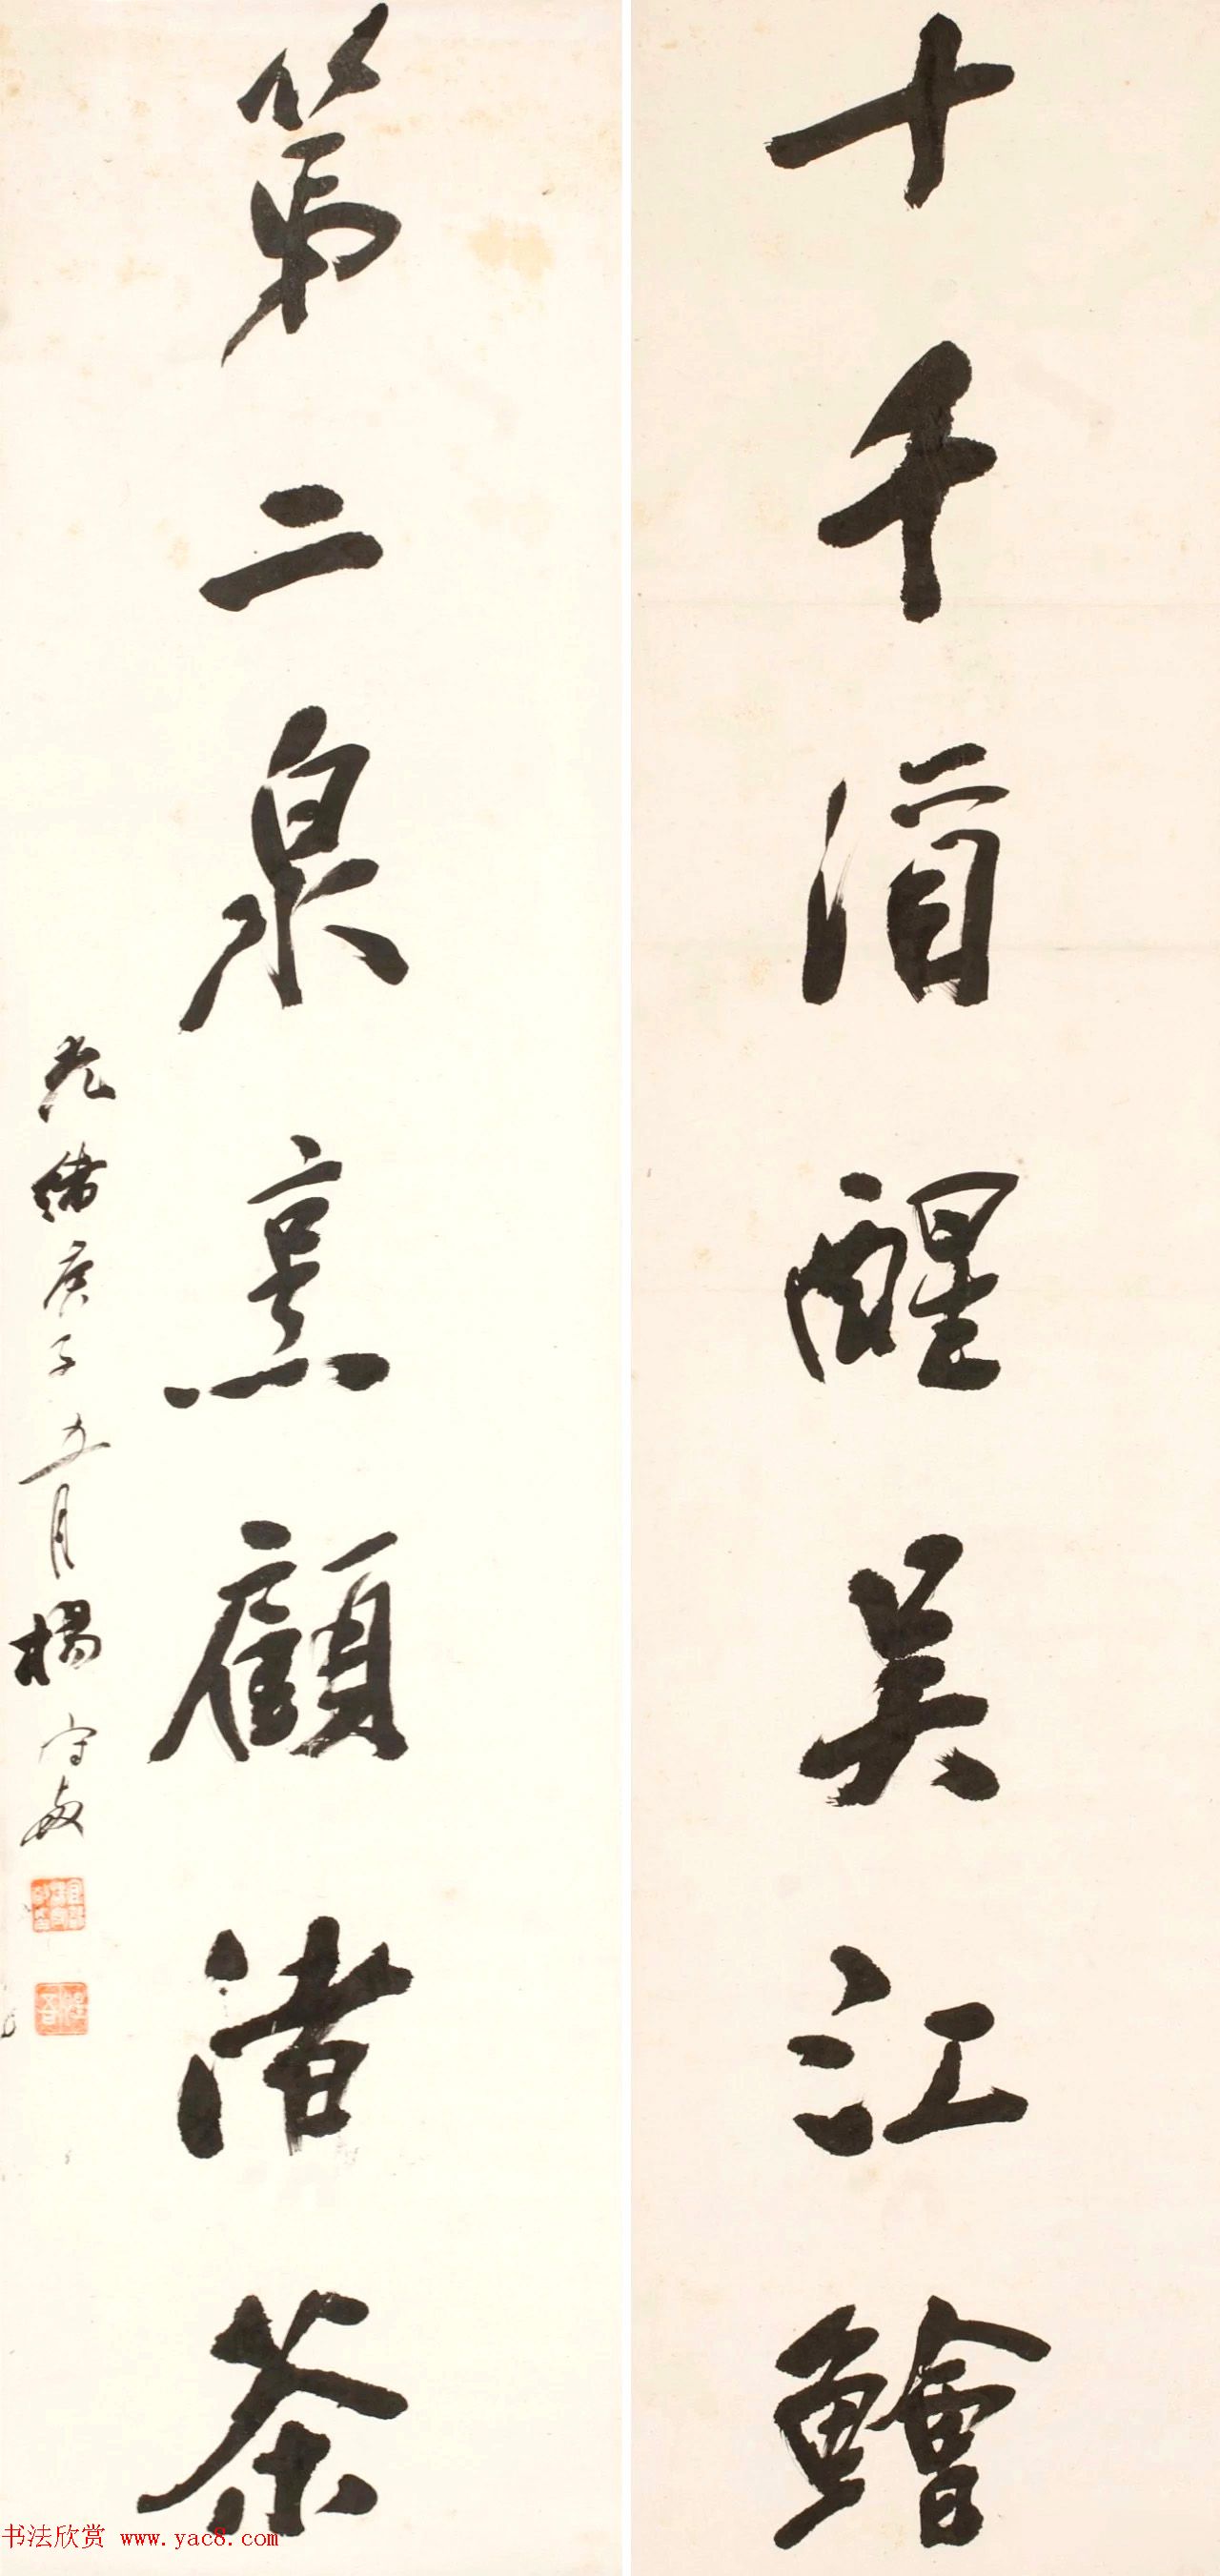 十千酒醒吳江鱠
第二泉烹顧渚茶
光緒庚子五月楊守敬
書法欣赏 www.yac8.com